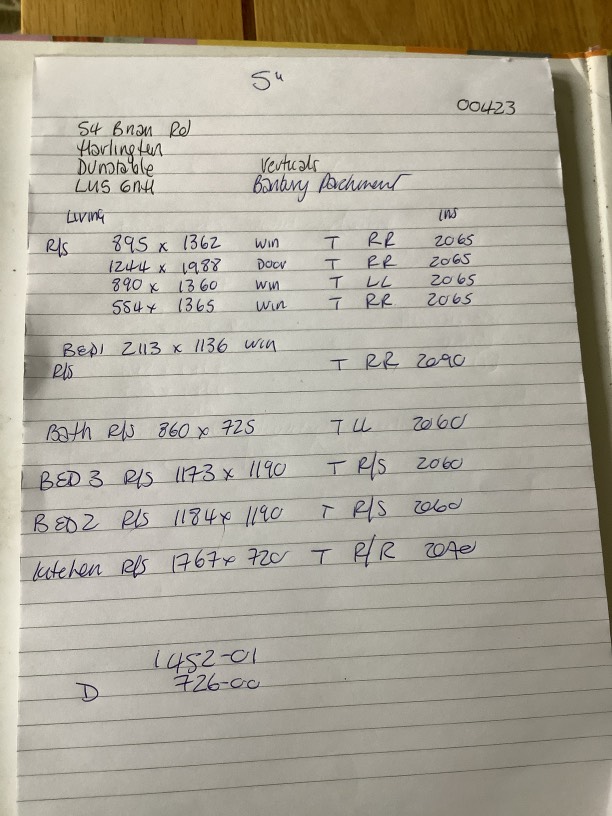 5"
00423
54 Brian Rd
Harlington
Dunstable
LU5 6NH
Verticals
Banbury Parchment
Living
ins
R/S 895 x 1362 win T RR 2065
1244 x 1988 Door T RR 2065
890 x 1360 win T LL 2065
554 x 1365 win T RR 2065
BED1 2113 x 1136 win
R/S T RR 2090
Bath R/S 860 x 725 T LL 2060
BED 3 R/S 1173 x 1190 T R/S 2060
BED 2 R/S 1184 x 1190 T R/S 2060
kitchen R/S 1767 x 720 T R/R
1452-01
D 726-00